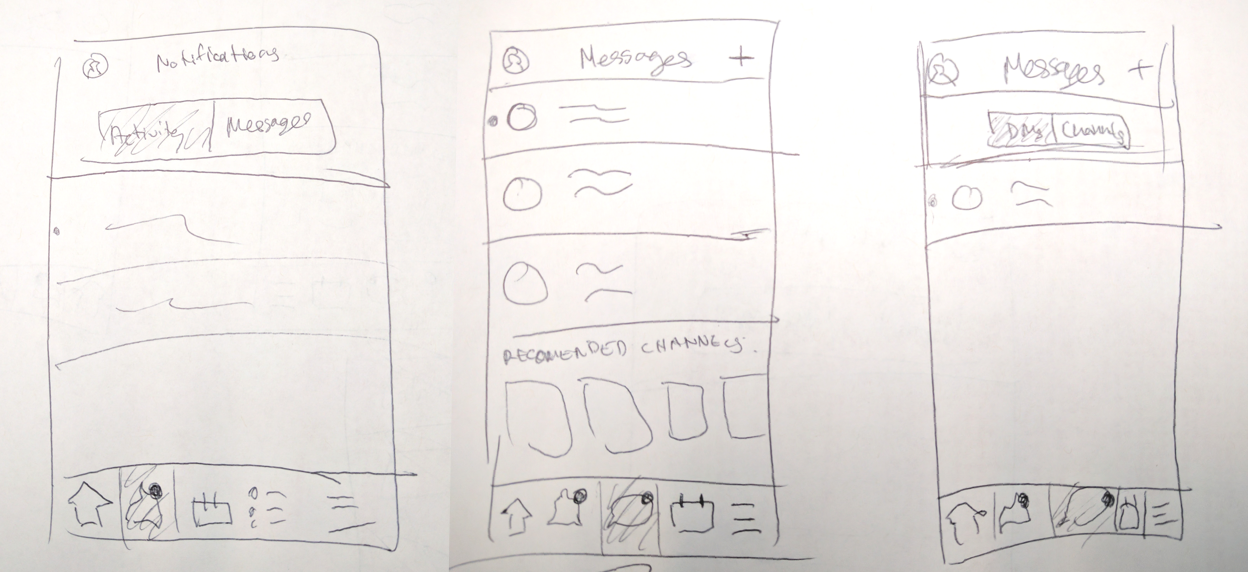 Notifications
Activity Messages
Messages +
RECOMENDED CHANNELS.
Messages +
DMs Channels